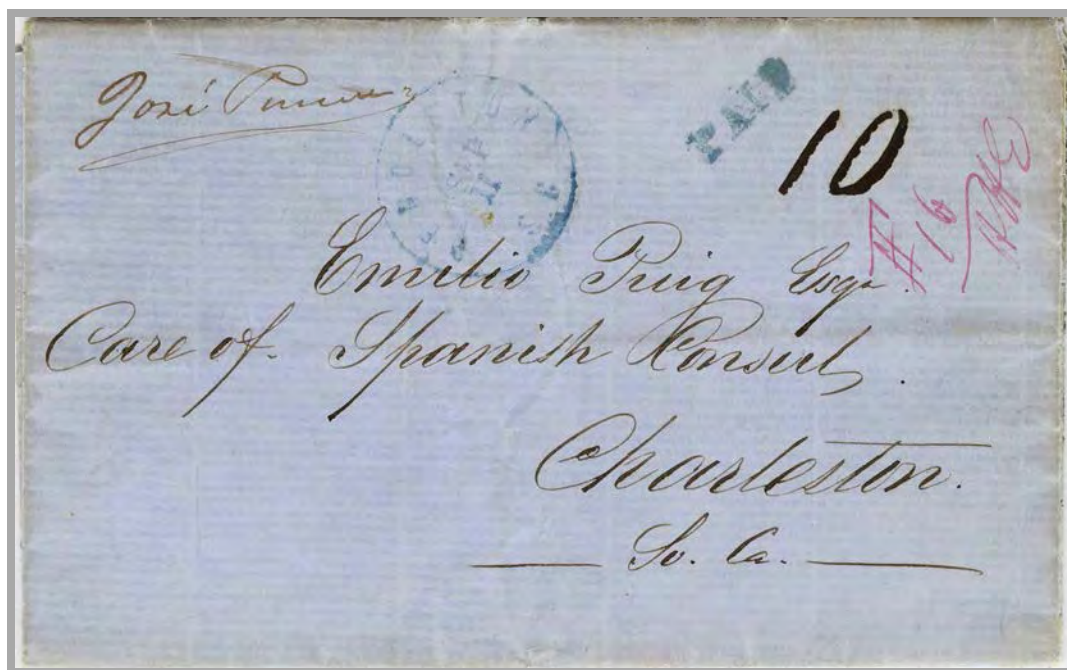 José
PAID
10
SEP
11
#16
Emilio Puig Esqr.
Care of. Spanish Consul,
Charleston.
So. Ca.